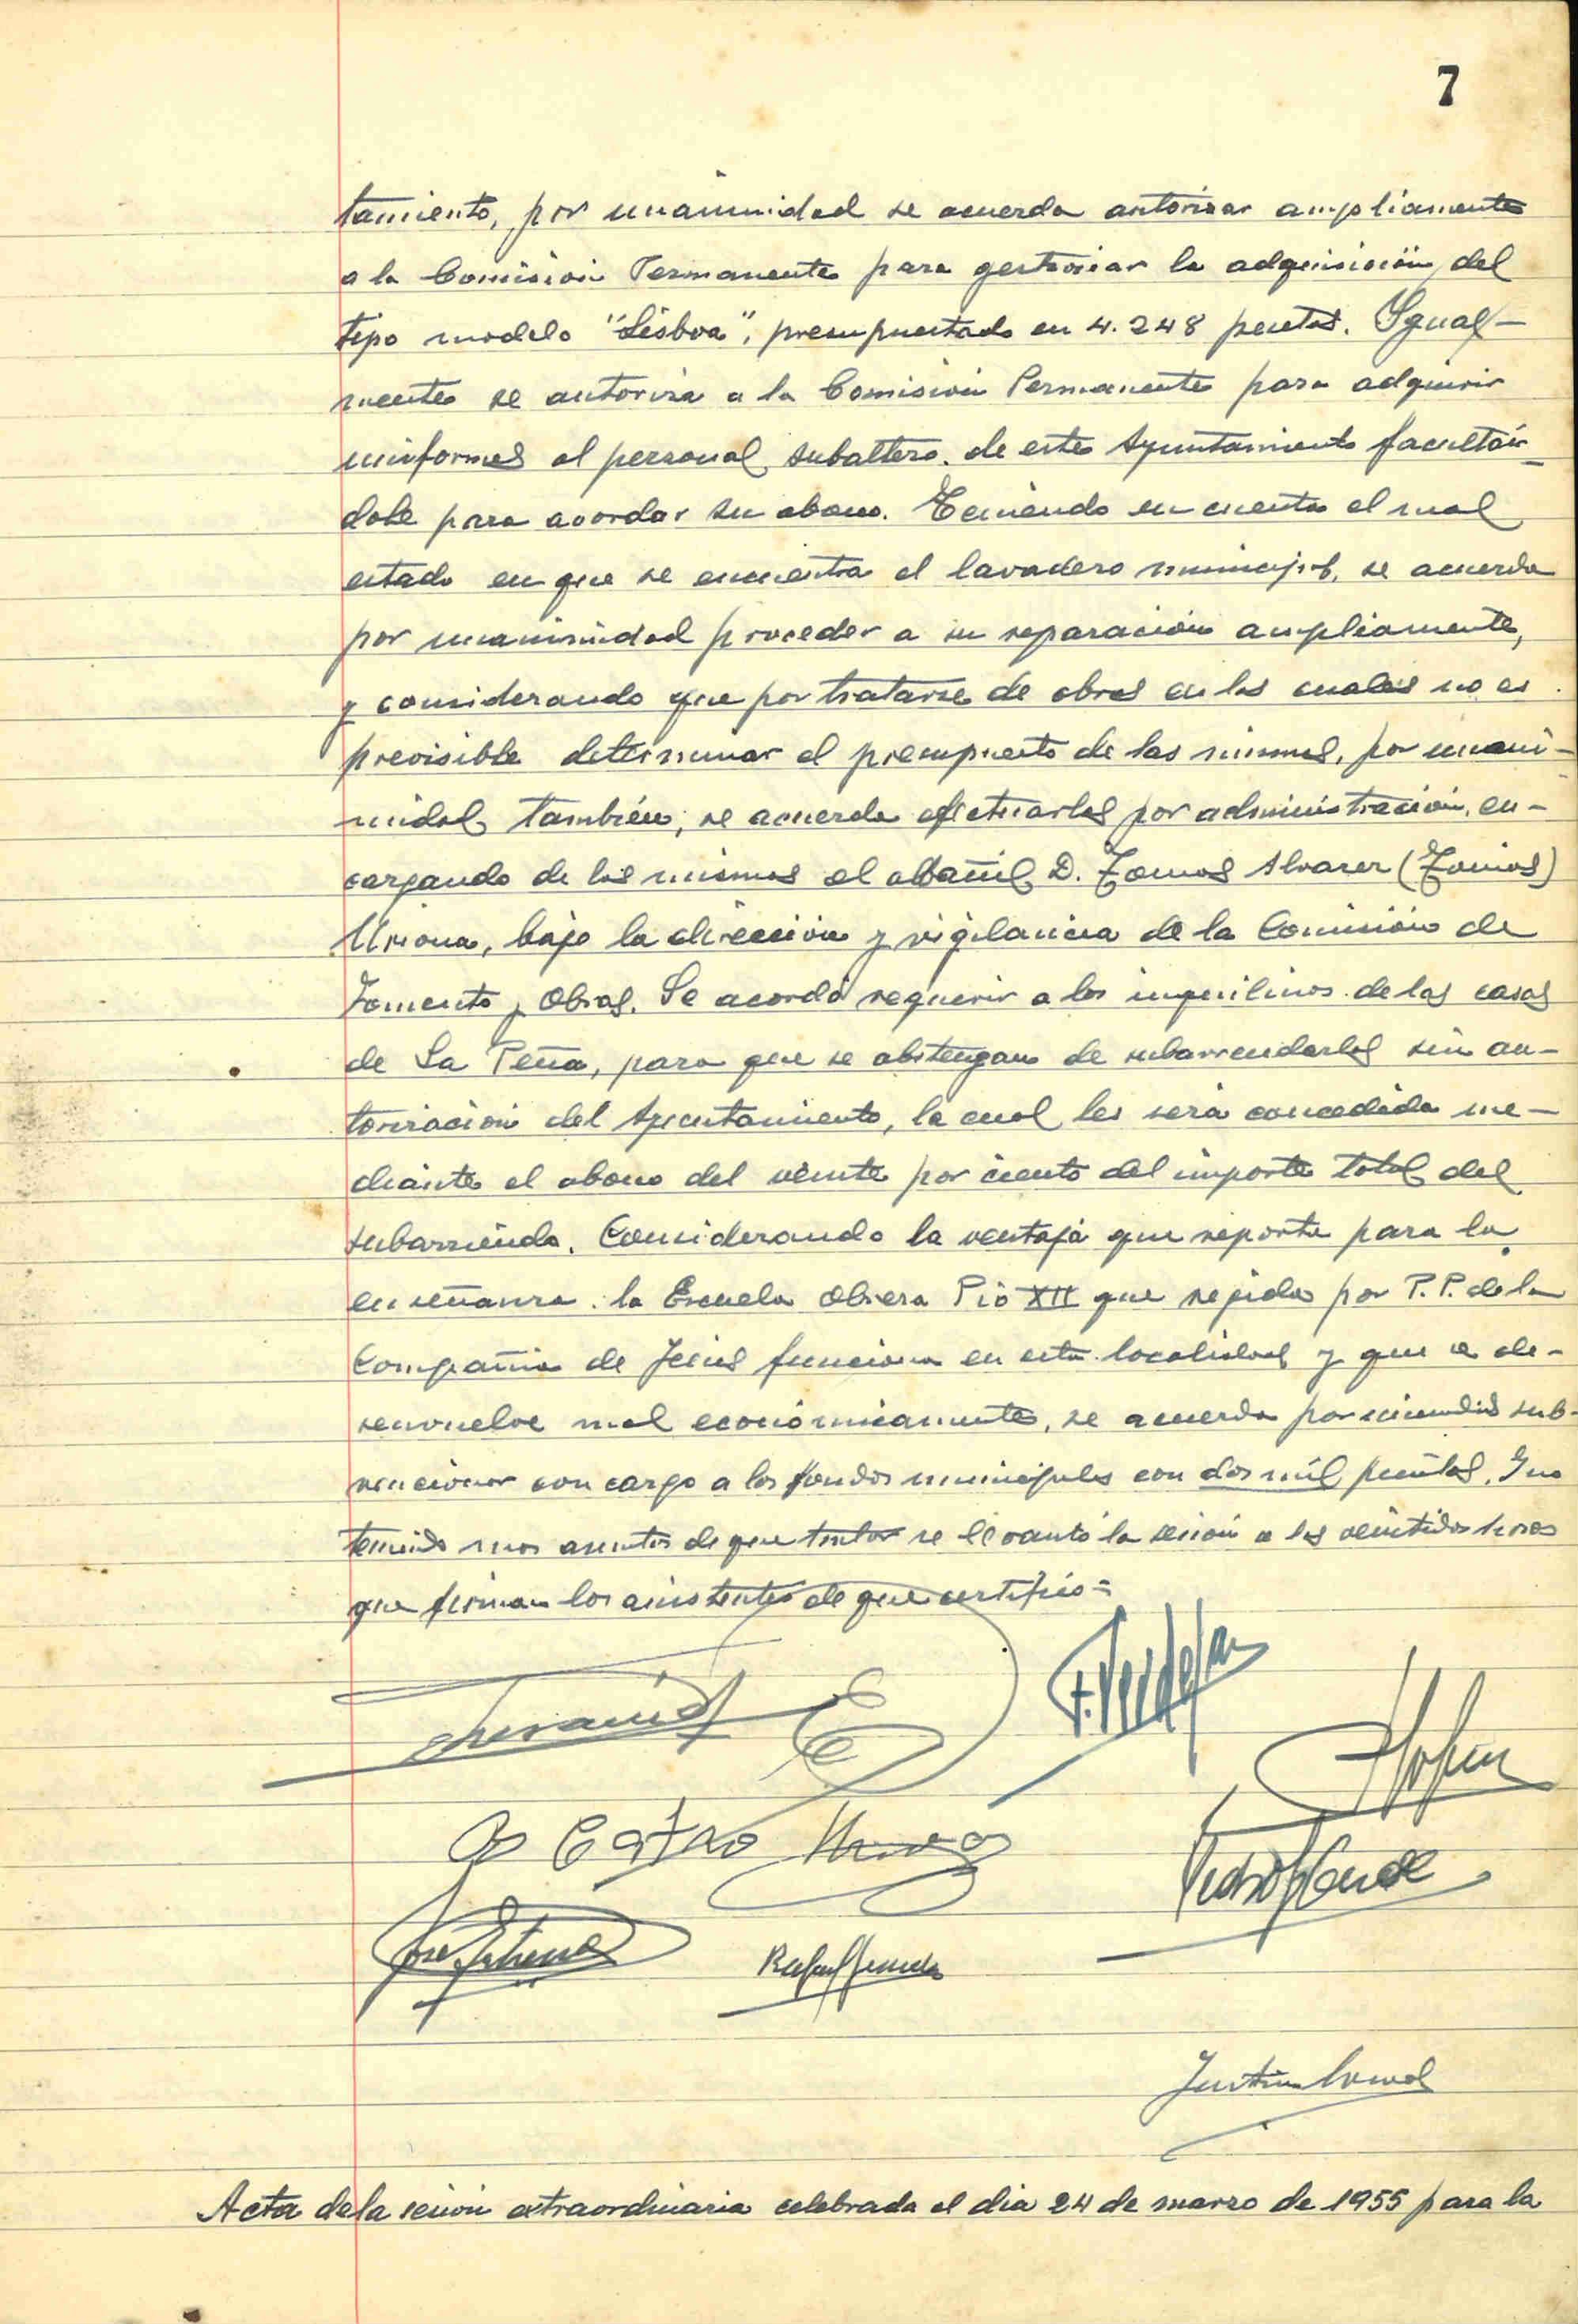 7
tamiento, por unanimidad se acuerda autorizar ampliamente
a la Comisión Permanente para gestionar la adquisición del
tipo modelo "Lisboa", presupuestado en 4.248 pesetas. Igual-
mente se autoriza a la Comisión Permanente para adquirir
uniformes al personal subaltero de este Ayuntamiento facultán-
dole para acordar su abono. Teniendo en cuenta el mal
estado en que se encuentra el lavadero municipal, se acuerda
por unanimidad proceder a su reparación ampliamente,
y considerando que por tratarse de obras en las cuales no es
previsible determinar el presupuesto de las mismas, por unani-
midad también, se acuerda efectuarlas por administración, en-
cargando de las mismas al albañil D. Tomas Alvarez (Tomas)
Uriona, bajo la dirección y vigilancia de la Comisión de
Fomento y Obras. Se acordó requerir a los inquilinos de las casas
de La Peña, para que se abstengan de subarrendarlas sin au-
torización del Ayuntamiento, la cual les será concedida me-
diante el abono del veinte por ciento del importe total del
subarriendo. Considerando la ventaja que reporta para la
enseñanza la Escuela Obrera Pio XII que regida por P.P. de la
Compañia de Jesús funciona en esta localidad y que se de-
senvuelve mal económicamente, se acuerda por unanimidad sub-
vencionar con cargo a los fondos municipales con dos mil pesetas. Y no
teniendo mas asuntos de que tratar se levantó la sesión a las veintidos horas
que firman los asistentes de que certifico =
F. Verdejan
Castro
Jose
Rafael
Pedro
Acta de la sesion extraordinaria celebrada el dia 24 de marzo de 1955 para la